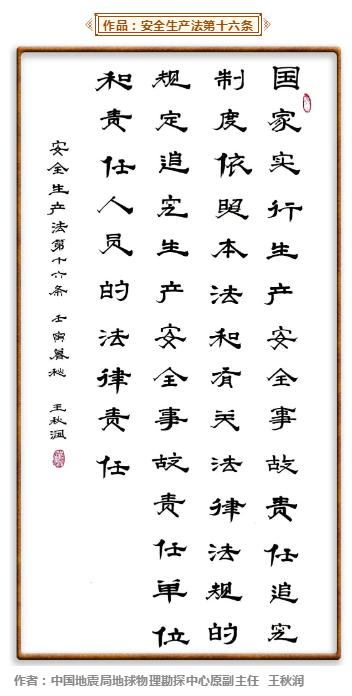 作品：安全生产法第十六条
国家实行生产安全事故责任追究
制度依照本法和有关法律法规的
规定追究生产安全事故责任单位
和责任人员的法律责任
安全生产法第十六条 壬寅暮秋 王秋润
作者：中国地震局地球物理勘探中心原副主任 王秋润